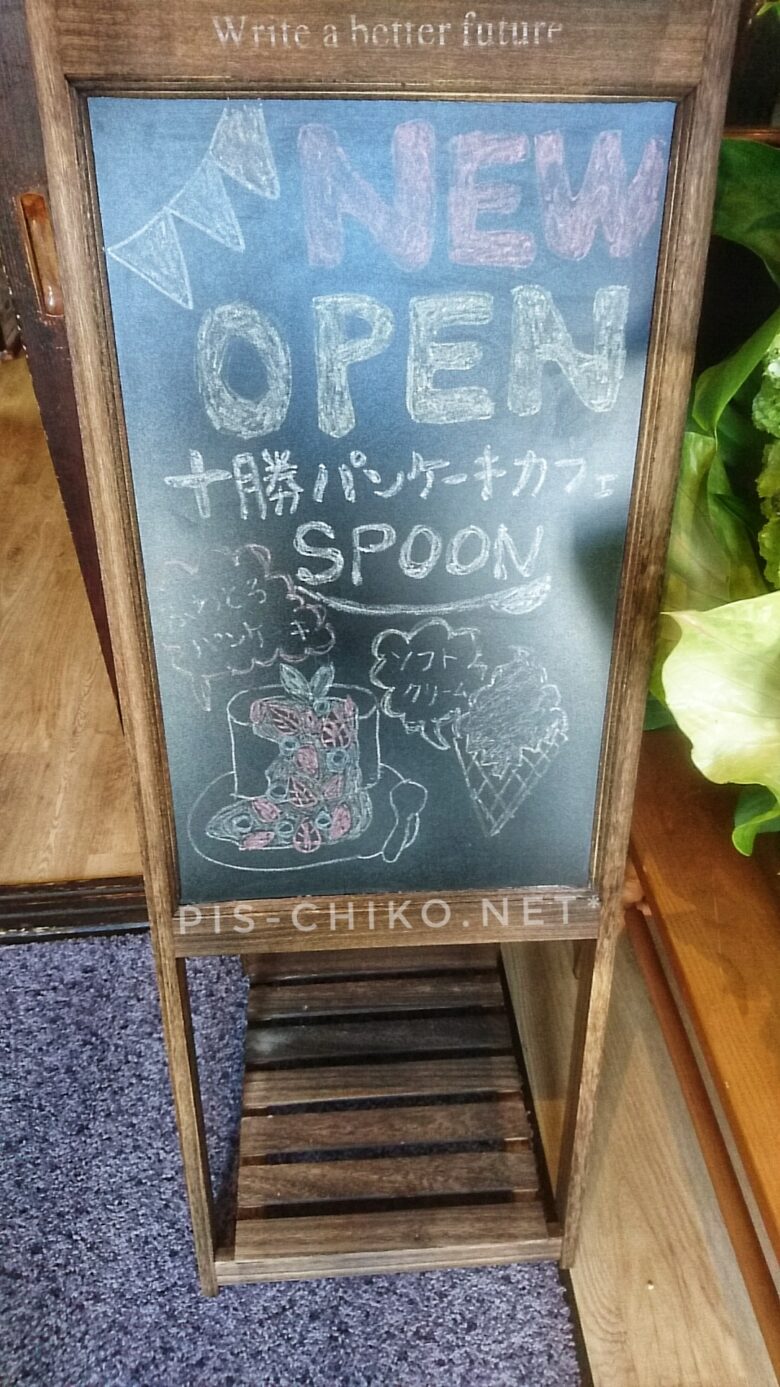 Write a better future
NEW
OPEN
十勝パンケーキカフェ
SPOON
パンケーキ
ソフト
クリーム
PIS-CHIKO.NET*